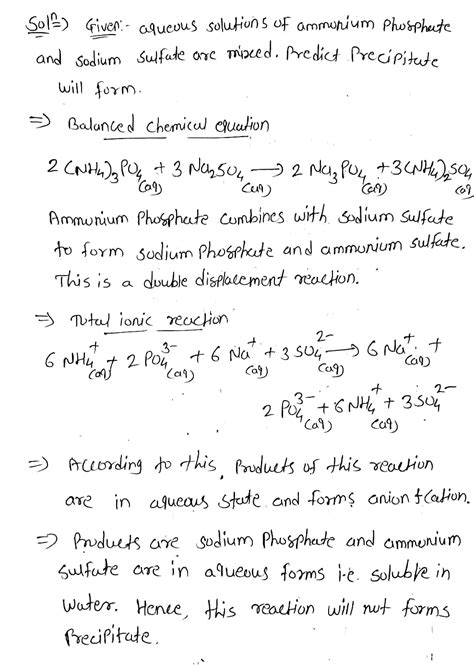 Solⁿ⇒) Given:- aqueous solutions of ammonium Phosphate
and sodium sulfate are mixed. Predict Precipitate
will form.
⇒ Balanced chemical equation
2 (NH₄)₃PO₄(aq) + 3 Na₂SO₄(aq) ⟶ 2 Na₃PO₄(aq) + 3(NH₄)₂SO₄(aq)
Ammonium Phosphate combines with sodium sulfate
to form sodium Phosphate and ammonium sulfate.
This is a double displacement reaction.
⇒ Total ionic reaction
6 NH₄⁺(aq) + 2 PO₄³⁻(aq) + 6 Na⁺(aq) + 3 SO₄²⁻(aq) ⟶ 6 Na⁺(aq) +
2 PO₄³⁻(aq) + 6 NH₄⁺(aq) + 3 SO₄²⁻
⇒ According to this, Products of this reaction
are in aqueous state and forms anion & cation.
⇒ Products are sodium Phosphate and ammonium
sulfate are in aqueous forms i.e. soluble in
water. Hence, this reaction will not forms
Precipitate.